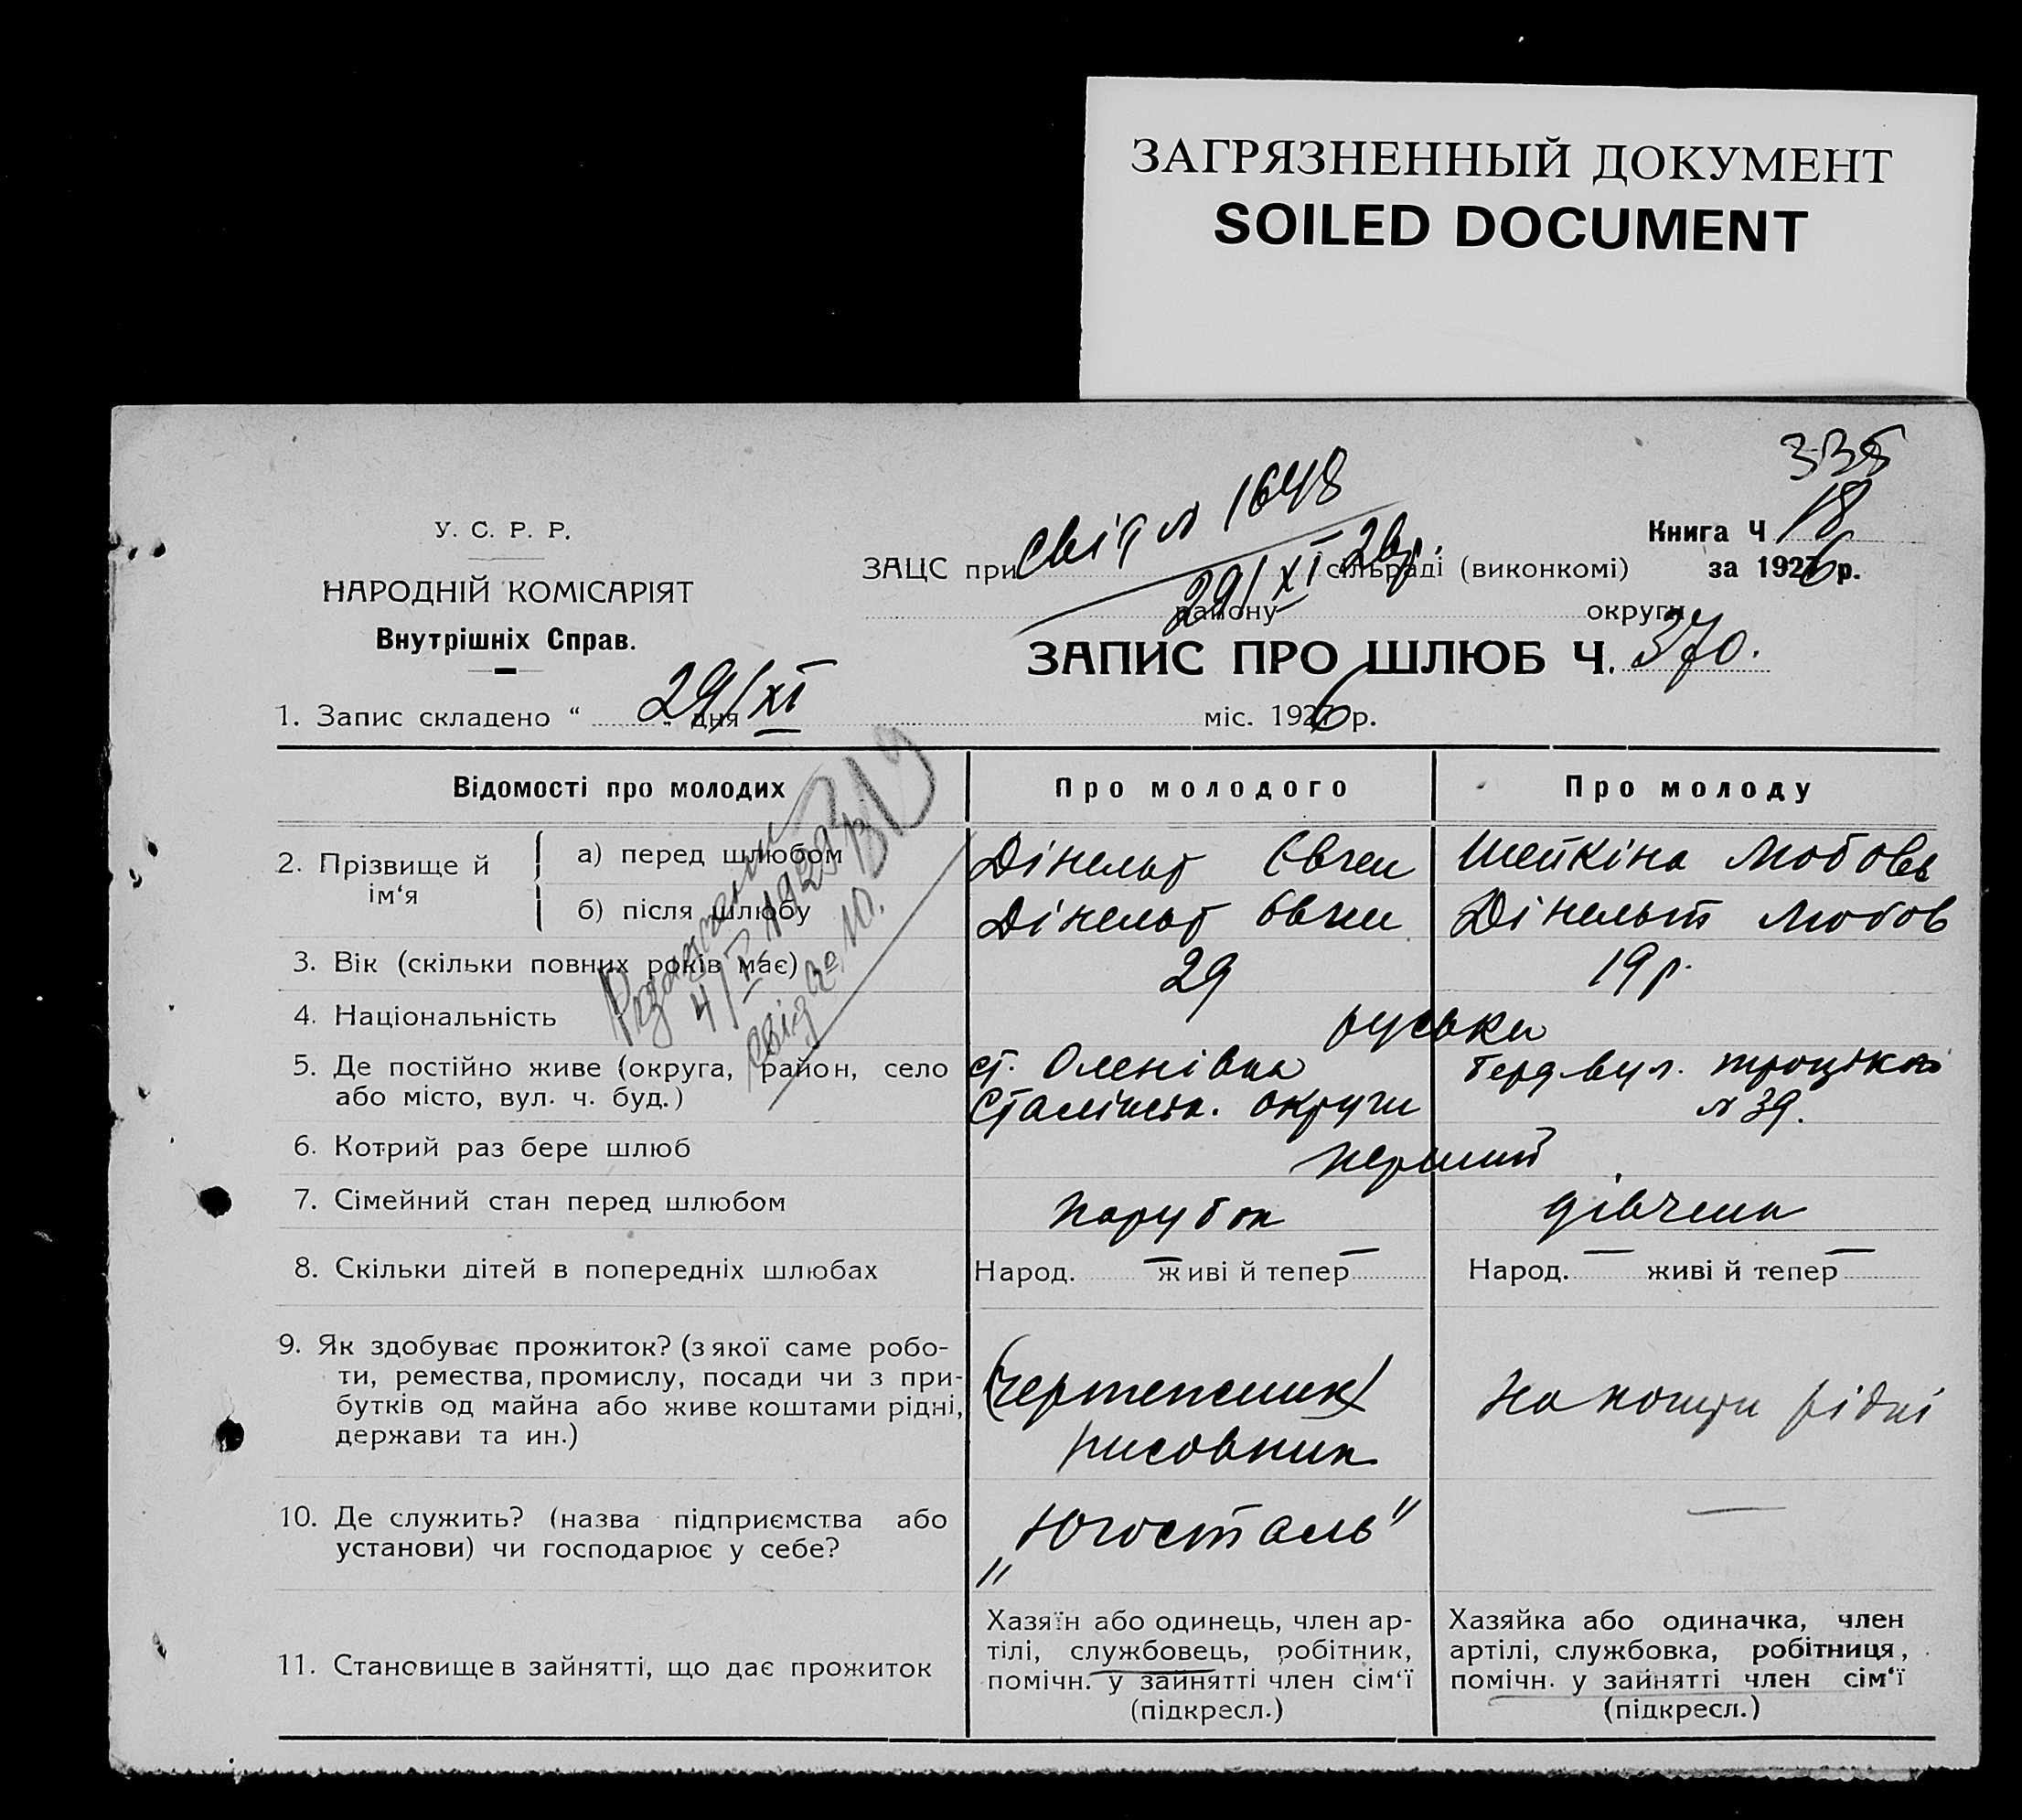 ЗАГРЯЗНЕННЫЙ ДОКУМЕНТ
SOILED DOCUMENT
335
У. С. Р. Р.
НАРОДНІЙ КОМІСАРІЯТ
Внутрішніх Справ.
Книга Ч 18
за 1926 р.
свід N 1648
29/XI 26р.
ЗАЦС при сільраді (виконкомі)
району округи
ЗАПИС ПРО ШЛЮБ Ч. 370.
1. Запис складено “ 29/XI „ дня міс. 1926 р.
Відомості про молодих Про молодого Про молоду
2. Прізвище й ім‘я
а) перед шлюбом Дінельт Євген Шейкіна Любовь
б) після шлюбу Дінельт Євген Дінельт Любов
3. Вік (скільки повних років має) 29 19 р.
4. Національність руськи
5. Де постійно живе (округа, район, село ст. Оленівка Берд вул. Троцького
або місто, вул. ч. буд.) Сталінськ. округи N 39.
6. Котрий раз бере шлюб перший
7. Сімейний стан перед шлюбом парубок дівчина
8. Скільки дітей в попередніх шлюбах Народ. — живі й тепер — Народ. — живі й тепер —
9. Як здобуває прожиток? (з якої саме робо-
ти, ремества, промислу, посади чи з при-
бутків од майна або живе коштами рідні,
держави та ин.)
(чертежник)
рисовник
На кошти рідні
10. Де служить? (назва підприємства або
установи) чи господарює у себе?
„Югосталь" —
11. Становище в зайнятті, що дає прожиток
Хазяїн або одинець, член ар-
тілі, службовець, робітник,
помічн. у зайнятті член сім‘ї
(підкресл.)
Хазяйка або одиначка, член
артілі, службовка, робітниця,
помічн. у зайнятті член сім‘ї
(підкресл.)